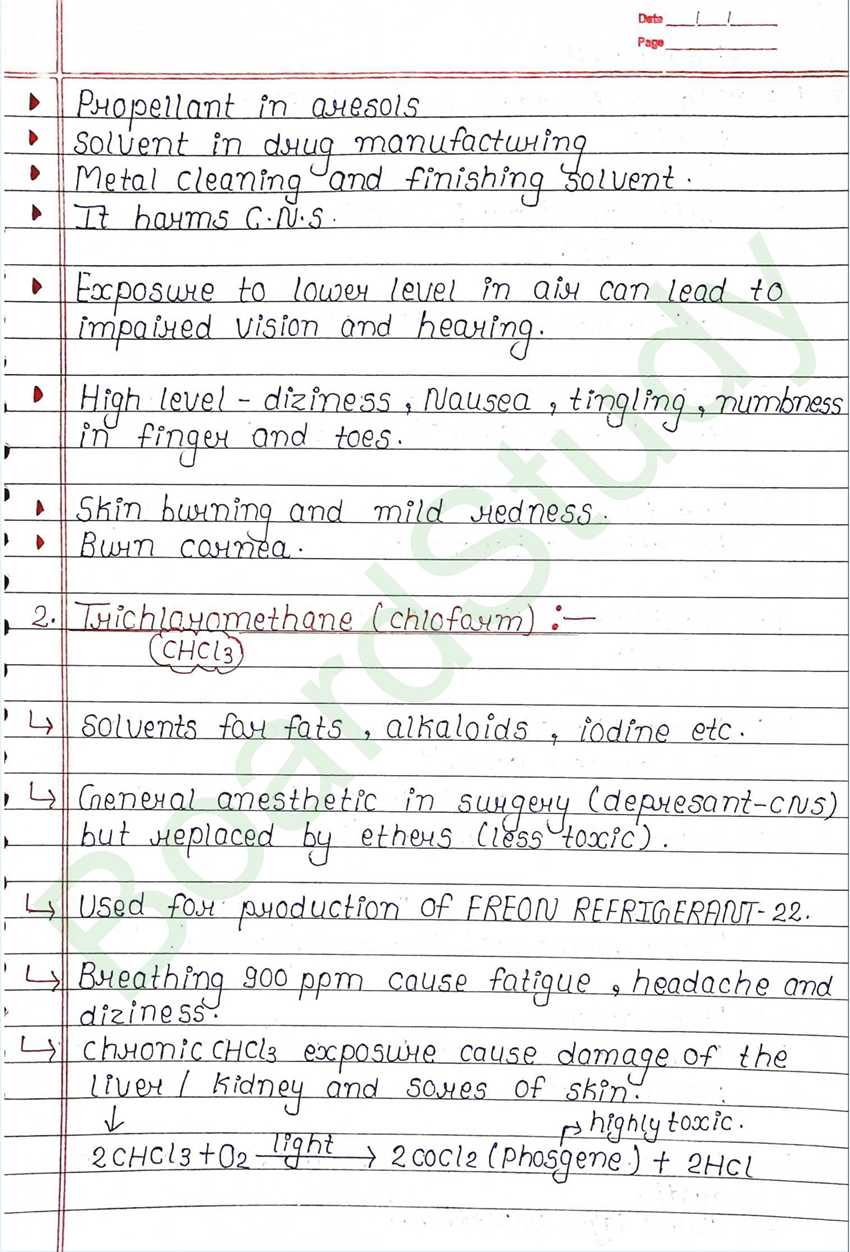 Date / /
Page
Propellant in aresols
Solvent in drug manufacturing
Metal cleaning and finishing solvent.
It harms C.N.S.
Exposure to lower level in air can lead to
impaired vision and hearing.
High level - diziness, Nausea, tingling, numbness
in finger and toes.
Skin burning and mild redness.
Burn cornea.
2. Trichloromethane (chloform) :—
CHCl3
Solvents for fats, alkaloids, iodine etc.
General anesthetic in surgery (depresant-CNS)
but replaced by ethers (less toxic).
Used for production of FREON REFRIGERANT-22.
Breathing 900 ppm cause fatigue, headache and
diziness.
chronic CHCl3 exposure cause damage of the
liver / kidney and sores of skin.
↓ ↱ highly toxic.
2CHCl3 + O2 —light→ 2COCl2 (Phosgene) + 2HCl
BoardStudy